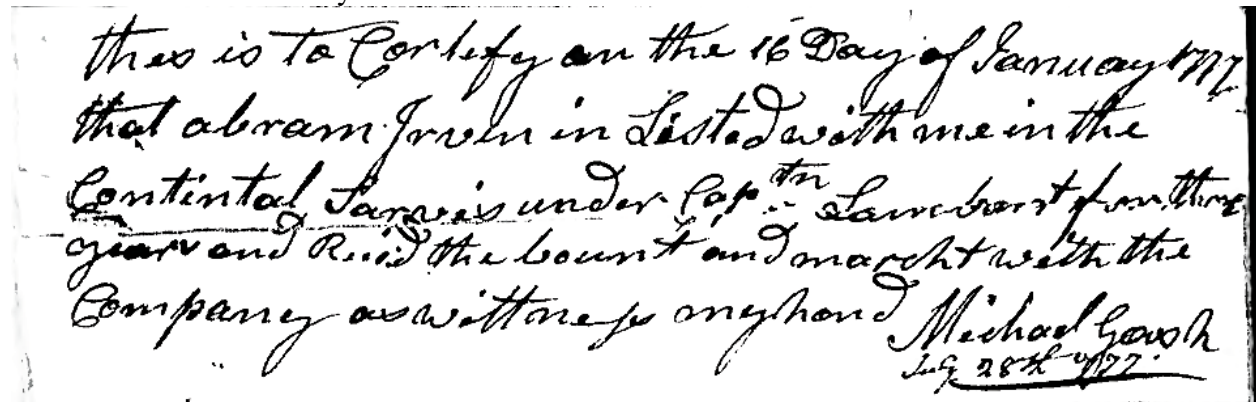 this is to Cortefy on the 16 Day of January 1777
that abram Irven in Listed with me in the
Contintal Sarvis under Captn Lambart for three
years and Reiid the bount and marcht with the
Company as wittness my hand Michael Gash
July 28th 1777